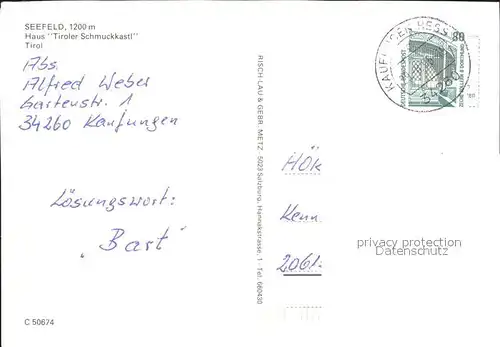 SEEFELD, 1200 m
Haus "Tiroler Schmuckkastl"
Tirol
Abs.
Alfred Weber
Gartenstr. 1
34260 Kaufungen
Lösungswort:
"Bart"
C 50674
RISCH-LAU & GEBR. METZ - 5023 Salzburg, Hannakstrasse, 1 - Tel. 680430
80
KAUFUNGEN, HESS
34260
HÖR
Kenn
2061
privacy protection
Datenschutz